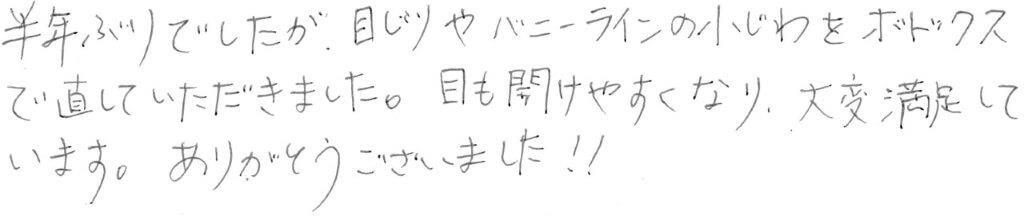 半年ぶりでしたが、目じりやバニーラインの小じわをボトックス
で直していただきました。目も開けやすくなり、大変満足して
います。ありがそうございました!!